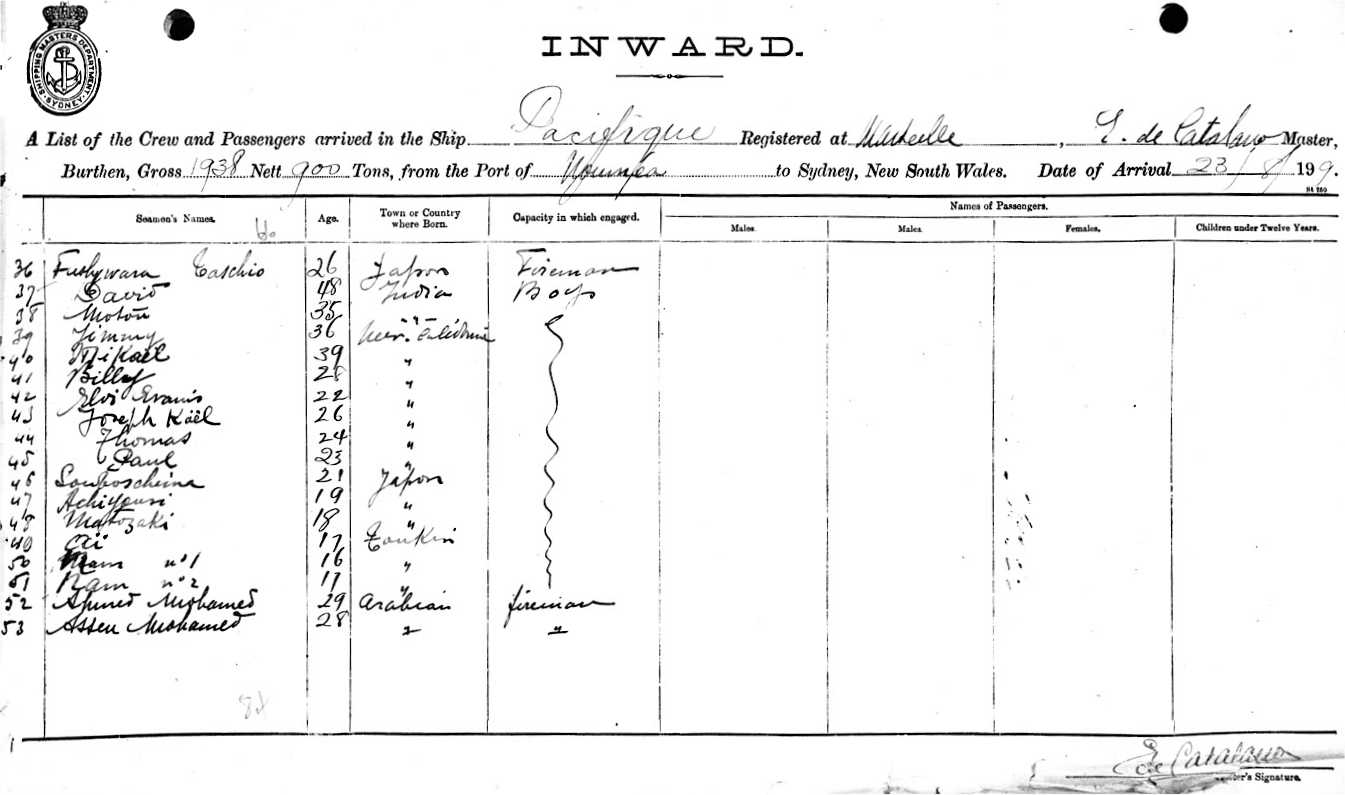 SHIPPING MASTERS DEPARTMENT · SYDNEY ·
INWARD.
A List of the Crew and Passengers arrived in the Ship Pacifique Registered at , E. de Catalano Master,
Burthen, Gross 1938 Nett 900 Tons, from the Port of Noumea to Sydney, New South Wales. Date of Arrival 23/8/ 199.
St 250
Seamen's Names. Age. Town or Country where Born. Capacity in which engaged. Names of Passengers.
Males. Males. Females. Children under Twelve Years.
36 Fushywara Taschio 26 Japon Fireman
37 David 48 India Boys
38 Motou 35 " "
39 Jimmy 36 New. Calédonie
40 Mikaël 39 "
41 Billy 28 "
42 Eloi Evanis 22 "
43 Joseph Kaël 26 "
44 Thomas 24 "
45 Paul 23 "
46 21 Japon
47 Achiyouri 19 "
48 Matozaki 18 "
49 17 Tonkin
50 Nam n°1 16 "
51 Nam n°2 17 "
52 Ahmed Mohamed 29 Arabian fireman
53 Assen Mohamed 28 " "
E de Catalano
Master's Signature.